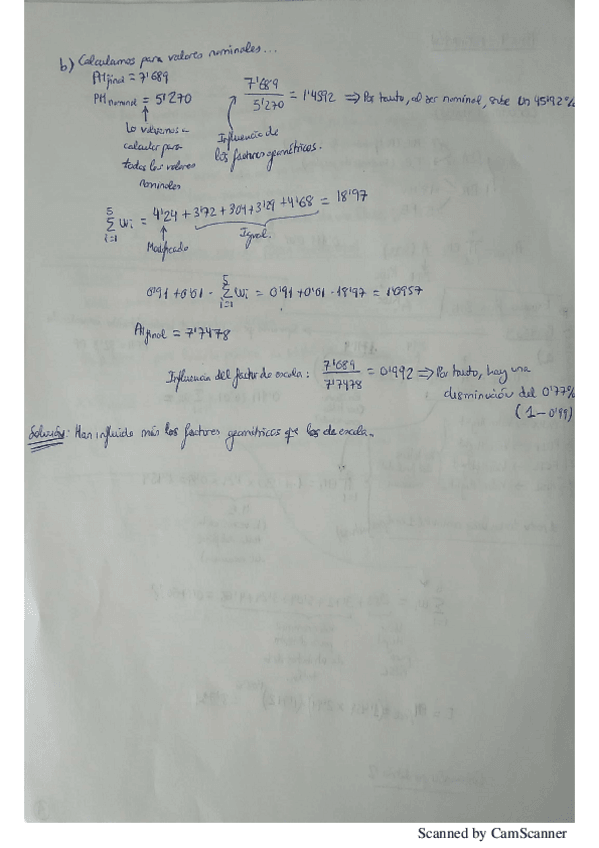 b) Calculamos para valores nominales...
AHfinal = 7'689
PHnominal = 5'270
7'689 / 5'270 = 1'4592 ⇒ Por tanto, al ser nominal, sube un 45'92%
Lo volvemos a
calcular para
todos los valores
nominales
Influencia de
los factores geométricos.
5 Σ i=1 Wi = 4'24 + 3'72 + 3'04 + 3'29 + 4'68 = 18'97
Modificado
Igual.
0'91 + 0'01 · 5 Σ i=1 Wi = 0'91 + 0'01 · 18'97 = 1'0957
AHfinal = 7'7478
Influencia del factor de escala: 7'689 / 7'7478 = 0'992 ⇒ Por tanto, hay una
disminución del 0'77%
(1 - 0'99)
Solución: Han influido más los factores geométricos que los de escala.
Scanned by CamScanner